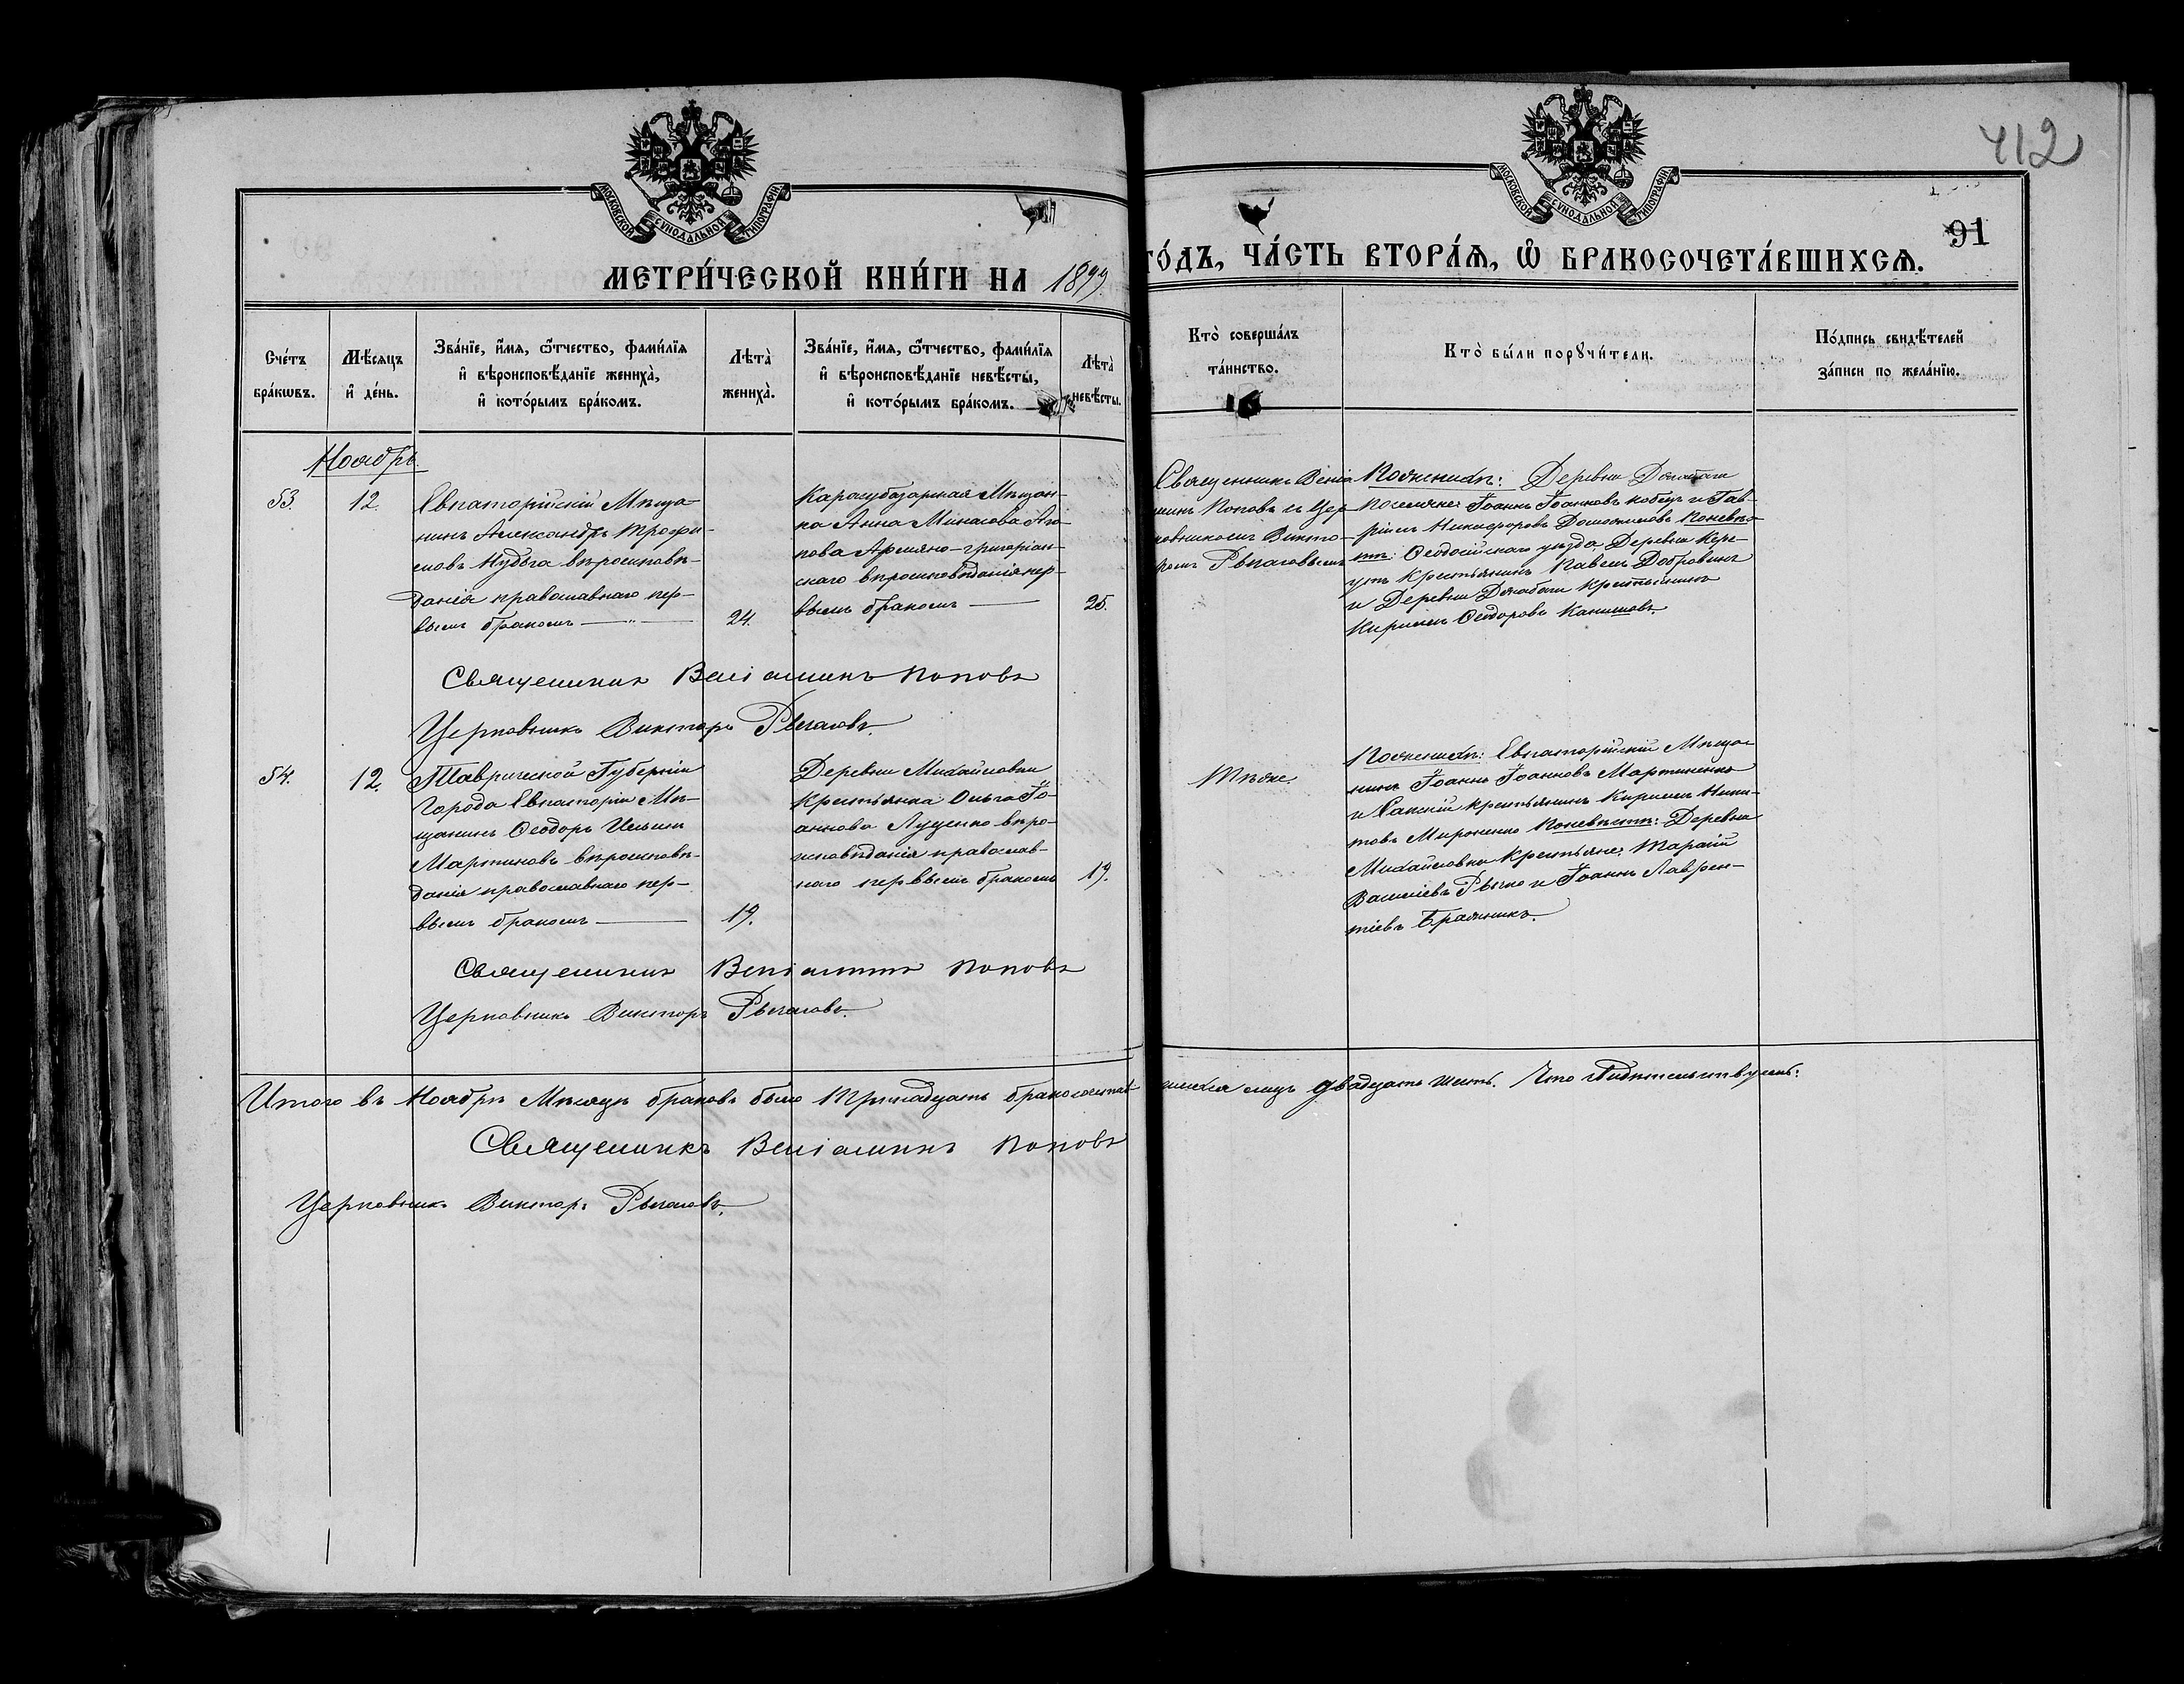 МОСКОВСКОЙ СѴНОДАЛЬНОЙ ТИПОГРАФІИ
МОСКОВСКОЙ СѴНОДАЛЬНОЙ ТИПОГРАФІИ
412
91
МЕТРИ́ЧЕСКОЙ КНИ́ГИ НА 1899
ГО́ДЪ, ЧА́СТЬ ВТОРА́Ѧ, Ѡ҆ БРАКОСОЧЕТА́ВШИХСѦ.
Сче́тъ
бра́кѡвъ.
Мѣ́сяцъ
и҆ де́нь.
Зва́нїе, и҆́мя, ѻ҆́тчество, фами́лїя
и҆ вѣроисповѣ́данїе жениха̀,
и҆ кото́рымъ бра́комъ.
Лѣта̀
жениха̀.
Зва́нїе, и҆́мя, ѻ҆́тчество, фами́лїя
и҆ вѣроисповѣ́данїе невѣ́сты,
и҆ кото́рымъ бра́комъ.
Лѣта̀
невѣ́сты.
Кто̀ соверша́лъ
та́инство.
Кто̀ бы́ли порꙋчи́тели.
По́дпись свидѣ́телей
за́писи по жела́нїю.
Ноябрь
53.
12.
Евпаторійскій Мѣща-
нинъ Александръ Трофи-
мовъ Нудьга вѣроисповѣ-
данія православнаго пер-
вымъ бракомъ — " —
24.
Карасубазарская Мѣщан-
ка Анна Минасова Аю-
пова Армяно-григоріан-
скаго вѣроисповѣданія пер-
вымъ бракомъ —
25.
Священникъ Веніа
минъ Поповъ и Цер-
ковникомъ Викто-
ромъ Рыгаловымъ
Поженихѣ: Деревни
Поселяне: Іоаннъ Іоанновъ и Гав-
ріилъ Никифоровъ Поневѣс-
тѣ: Ѳеодосійскаго уѣзда Деревни Кер-
утъ Крестьянинъ Павелъ
и Деревни Крестьянинъ
Кириллъ Ѳеодоровъ
Священникъ Веніаминъ Поповъ
Церковникъ Викторъ Рыгаловъ.
54.
12.
Таврической Губерніи
Города Евпаторіи Мѣ-
щанинъ Ѳеодоръ Ильинъ
Мартиновъ вѣроисповѣ-
данія православнаго пер-
вымъ бракомъ —
19.
Деревни Михайловки
Крестьянка Ольга Іо-
аннова Луценко вѣро-
исповѣданія православ-
наго первымъ бракомъ
19.
Тѣже.
Поженихѣ: Евпаторійскій Мѣща-
нинъ Іоаннъ Іоанновъ Мартиненко
и Сакскій крестьянинъ Кириллъ Ники-
товъ Мироненко Поневѣстѣ: Деревни
Михайловки Крестьяне: Тарасій
Василіевъ Рыжко и Іоаннъ Лаврен-
тіевъ Бражникъ.
Священникъ Веніаминъ Поповъ
Церковникъ Викторъ Рыгаловъ.
Итого въ Ноябрѣ Мѣсяцѣ браковъ было Тринадцать бракосочетав
шихся лицъ двадцать шесть. Что свидѣтельствуемъ:
Священникъ Веніаминъ Поповъ
Церковникъ Викторъ Рыгаловъ.